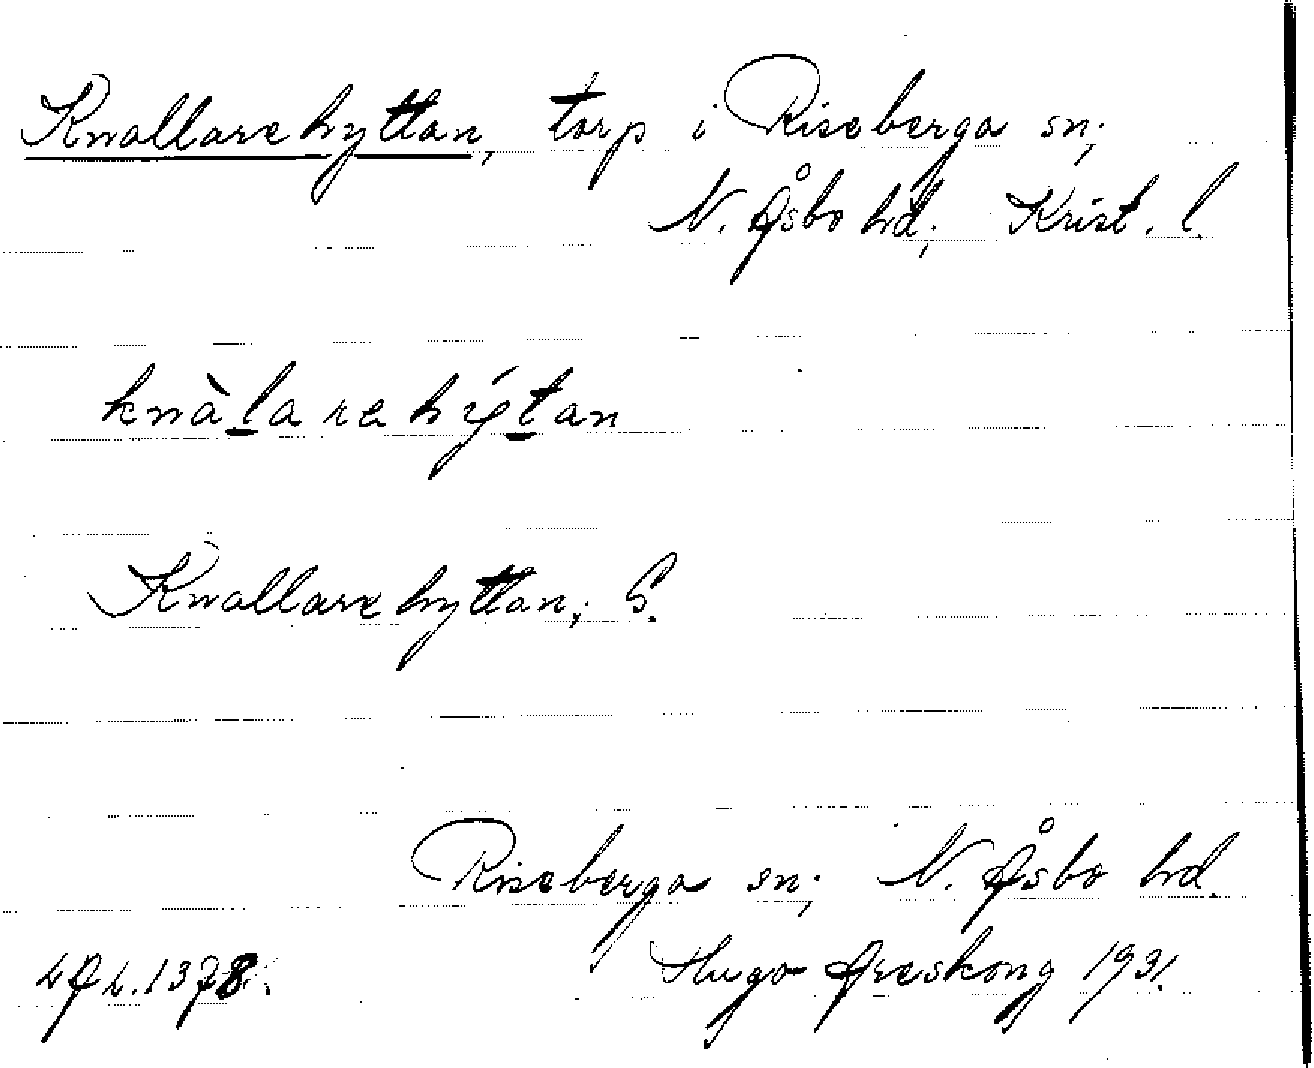 Knallarehyttan, torp i Riseberga sn;
N. Åsbo hd; Krist. l.
knàl̲arehýt̲an
Knallarehyttan; S.
Riseberga sn; N. Åsbo hd.
Hugo Areskoug 1931.